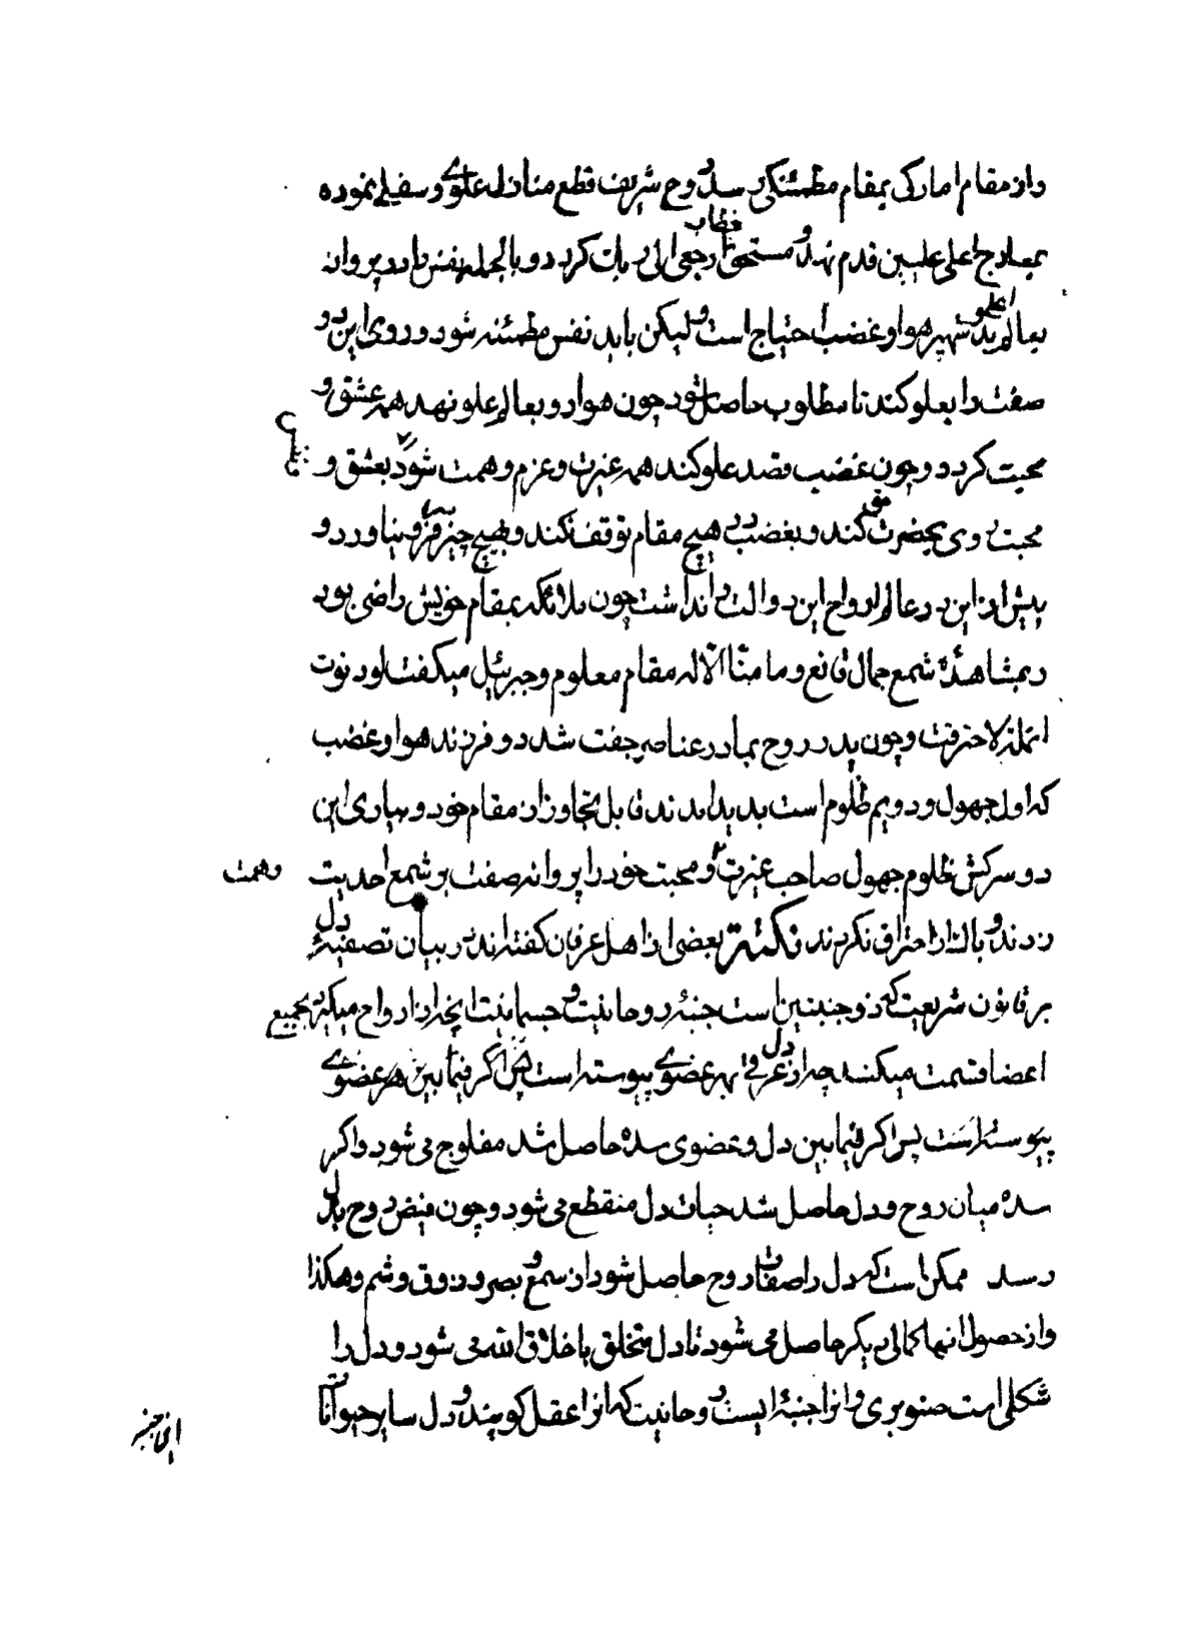 و از مقام امارکی بمقام مطمئنکی رسد و روح شریف قطع منازل علوی و سفلی نموده
بمعارج اعلی علیین قدم نهد و مستحق خطاب ارجعی الی ربک کردد و بالجمله نفس را در پرواز
بعالم علوی بدو شهپر هوا و غضب احتیاج است و لیکن باید نفس مطمئنه شود و روی این دو
صفت را بعلو کند تا مطلوب حاصل شود چون هوا رو بعالم علو نهد همه عشق و
محبت کردد و چون غضب قصد علو کند همه غیرت و عزم و همت شود بعشق و
محبت روی بحضرت حق کند و بغضب در هیچ مقام توقف نکند و بهیچ چیز سر فرو نیاورد و
پیش از این در عالم ارواح این دو الت را نداشت چون ملائکه بمقام خویش راضی بود
و بمشاهدۀ شمع جمال قانع و ما منّا الّا له مقام معلوم و جبرئیل میکفت لو دنوت
انملة لاحترقت و چون پدر روح بمادر عناصر جفت شد دو فرزند هوا و غضب
که اول جهول و دویم ظلوم است پدید امدند قابل تجاوز از مقام خود و بیاری این
دو سرکش ظلوم جهول صاحب غیرت و محبت خود را پروانه صفت بر شمع احدیت
و همت
زدند و بالذات احتراق نکردند نکته بعضی از اهل عرفان کفته اند در بیان تصفیۀ دل
بر قانون شریعت که ذو جنبتین است جنبۀ روحانیت و جسمانیت انچه از ارواح میکیرد بجمیع
اعضا قسمت میکند چه از دل عرقی بهر عضوی پیوسته است پس اکر فیما بین هر عضوی
پیوسته است پس اکر فیما بین دل و عضوی سده حاصل شد مفلوج می شود و اکر
سده میان روح و دل حاصل شد حیات دل منقطع می شود و چون فیض روح بدل
رسد ممکن است که دل را صفات روح حاصل شود از سمع و بصر و ذوق و شم و هکذا
و از حصول اینها کمالی دیکر حاصل می شود تا دل متخلق باخلاق الله می شود و دل را
شکلی است صنوبری و انرا جنبۀ ایست روحانیت که انرا عقل کویند و دل سایر حیوانات
این جنبه